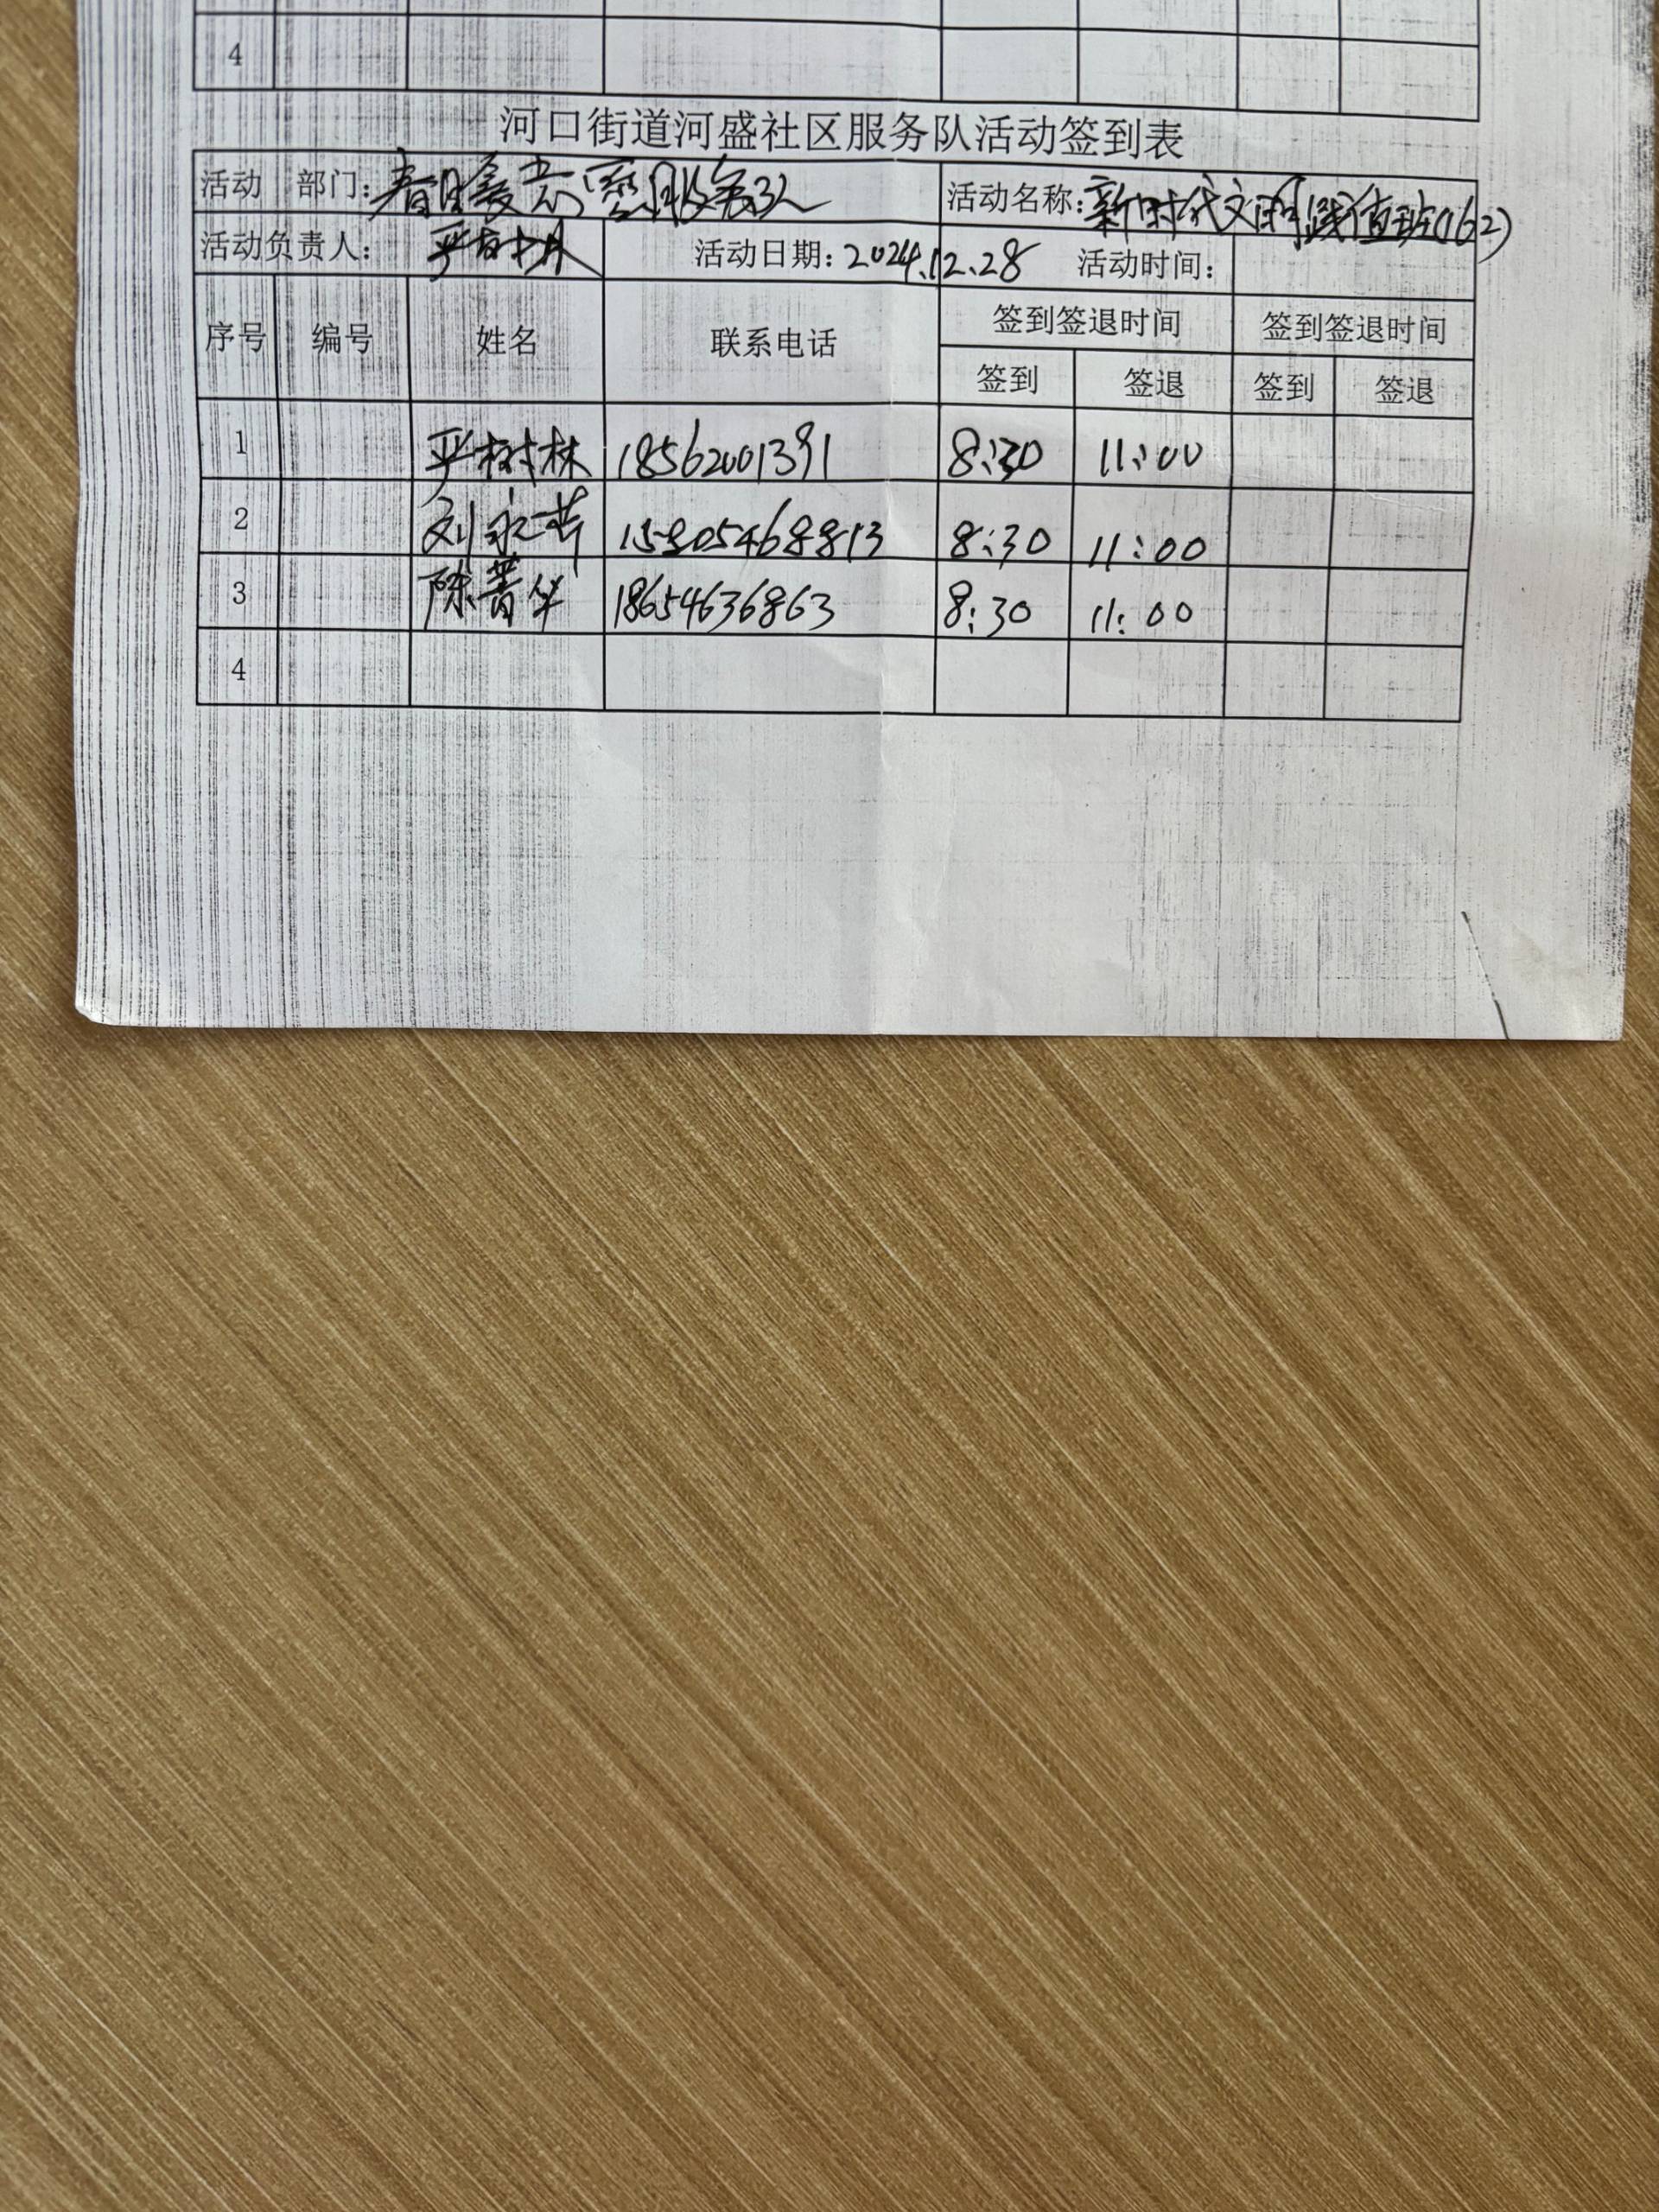 4
河口街道河盛社区服务队活动签到表
活动 部门：春日暖志愿服务队 活动名称：新时代文明实践值班(162)
活动负责人：严树林 活动日期：2024.12.28 活动时间：
序号 编号 姓名 联系电话 签到签退时间 签到签退时间
签到 签退 签到 签退
1 严树林 18562001391 8:30 11:00
2 刘永 15805468813 8:30 11:00
3 陈菁华 18654636863 8:30 11:00
4